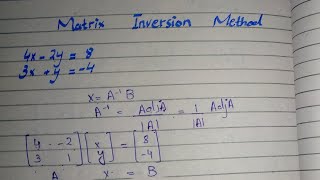 Matrix Inversion Method
4x - 2y = 8
3x + y = -4
X = A⁻¹ B
A⁻¹ = AdjA / |A| = 1 / |A| AdjA
[4 -2; 3 1] [x; y] = [8; -4]
A X = B